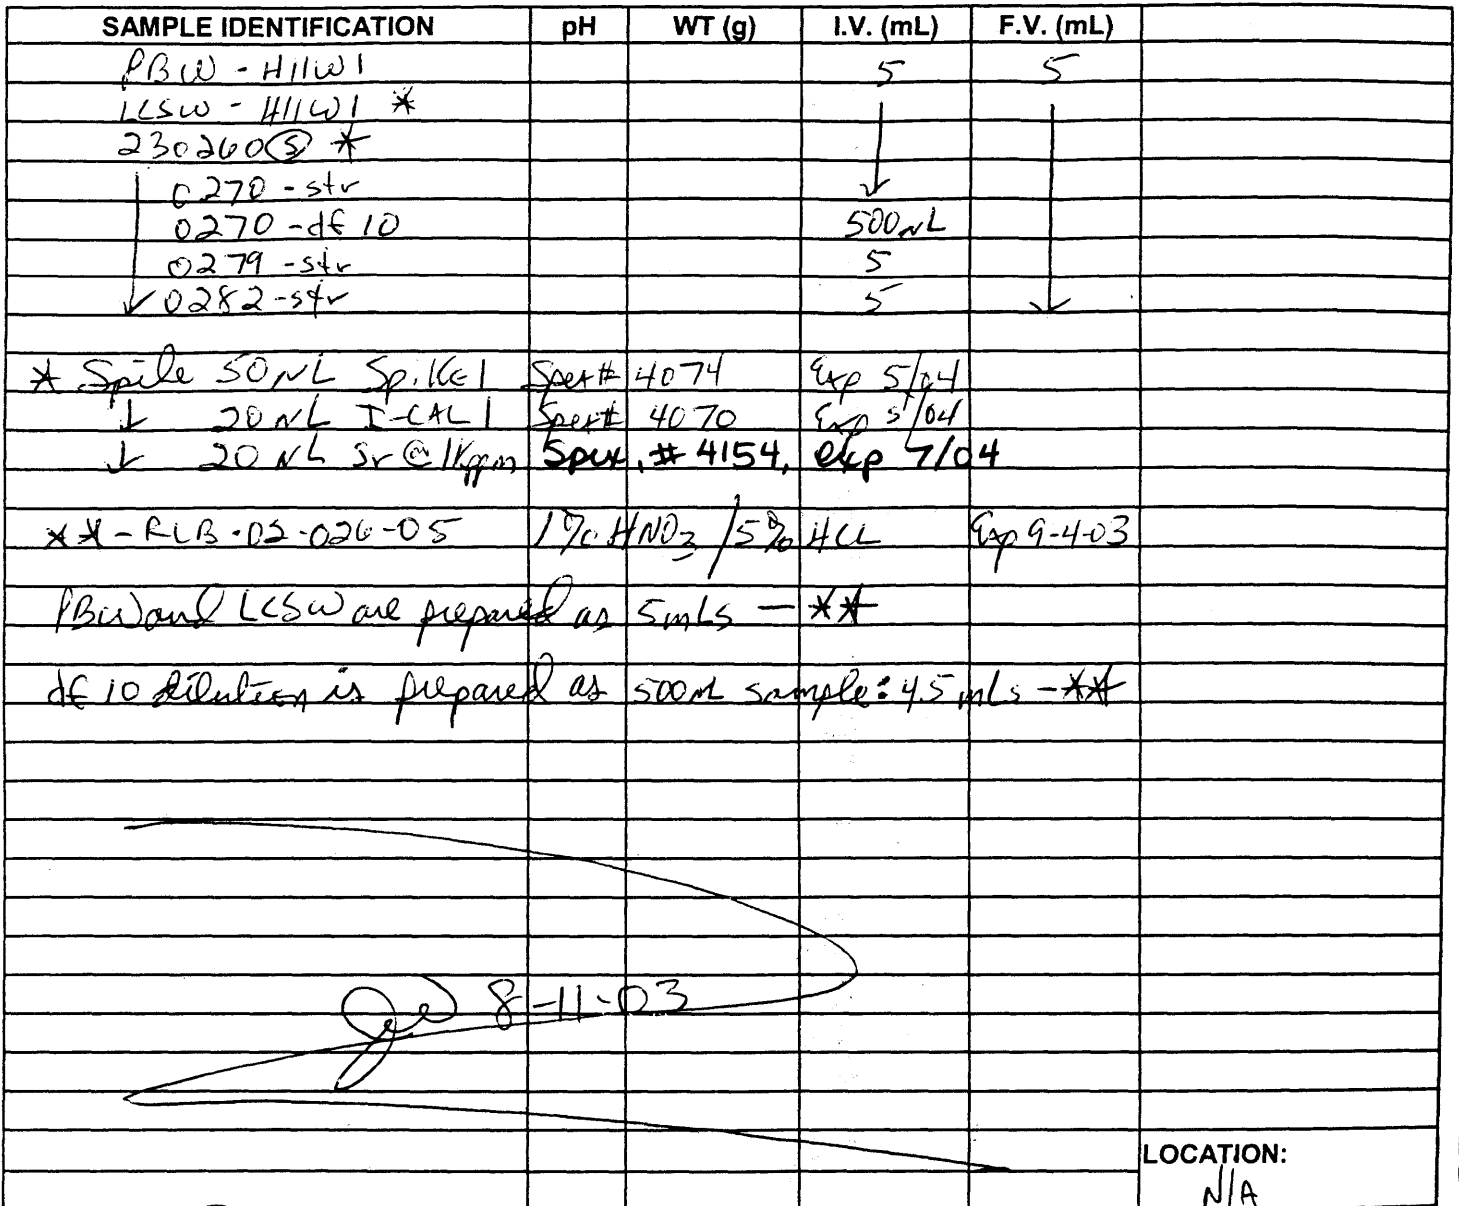 SAMPLE IDENTIFICATION pH WT (g) I.V. (mL) F.V. (mL)
PBW - H11W1 5 5
LCSW - H11W1 *
230260 Ⓢ *
0270 - str
0270 - df 10 500 uL
0279 - str 5
0282 - str 5
* Spike 50 uL Spike 1 Spex # 4074 Exp 5/04
↓ 20 uL I-CAL 1 Spex # 4070 Exp 5/04
↓ 20 uL Sr @ 1Kppm Spex, # 4154, exp 7/04
** - RLB-02-026-05 1% HNO3 / 5% HCL Exp 9-4-03
PBW and LCSW are prepared as 5 mLs - **
df 10 dilution is prepared as 500uL sample : 4.5 mLs - **
8-11-03
LOCATION:
N/A